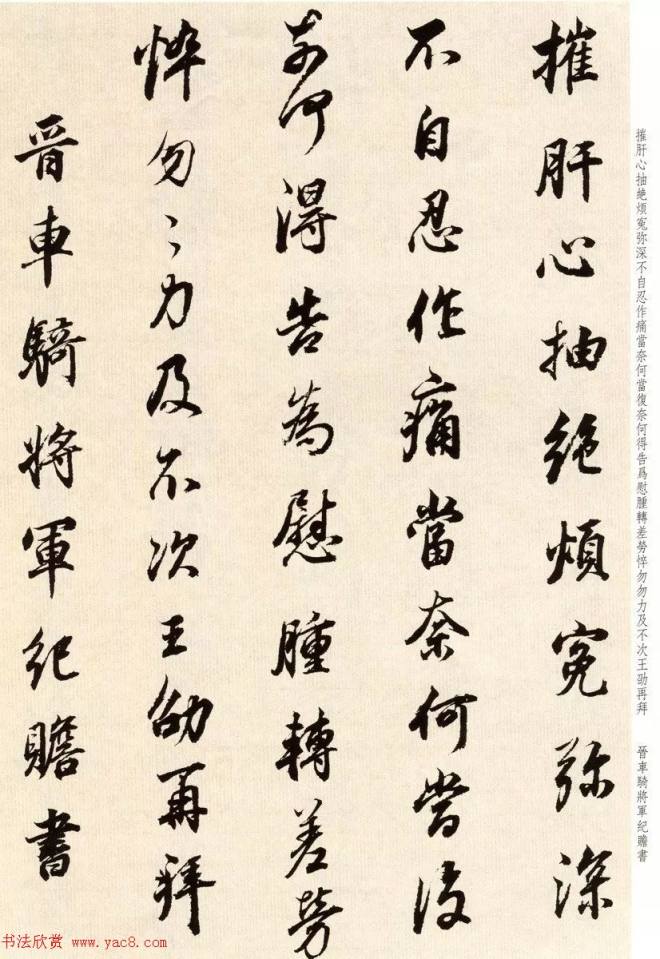 摧肝心抽絶煩冤弥深
不自忍作痛當奈何當復
奈何得告為慰腫轉差勞
悴勿〻力及不次王劭再拜
晉車騎將軍紀瞻書
摧肝心抽絶煩冤弥深不自忍作痛當奈何當復奈何得告爲慰腫轉差勞悴勿勿力及不次王劭再拜 晉車騎將軍紀瞻書
书法欣赏 www.yac8.com